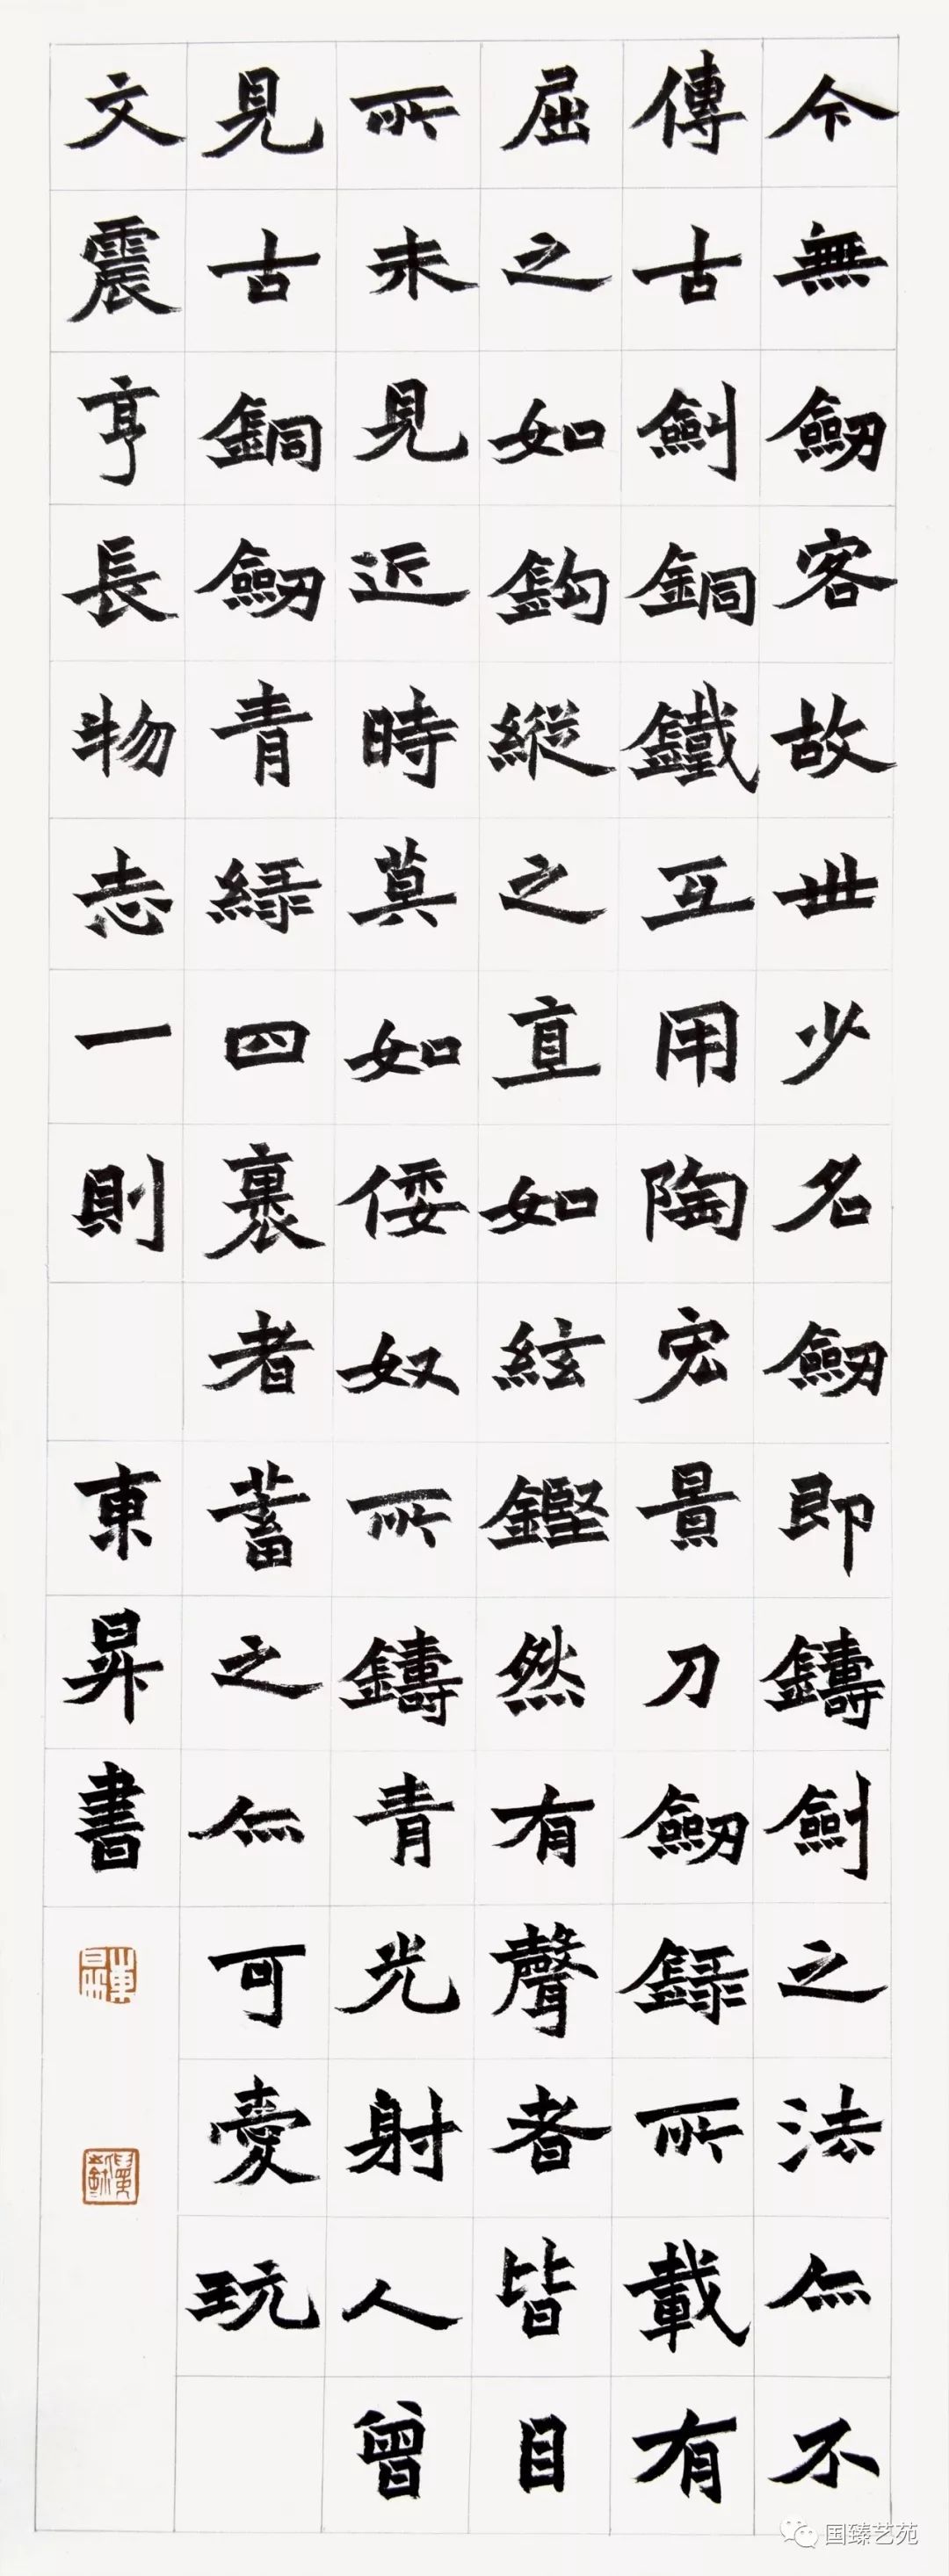 今無劒客故世少名劒即鑄劍之法亦不
傳古劍銅鐵互用陶宏景刀劒録所載有
屈之如鈎縱之直如絃鏗然有聲者皆目
所未見近時莫如倭奴所鑄青光射人曾
見古銅劒青緑四裹者蓄之亦可愛玩
文震亨長物志一則 東昇書
国臻艺苑